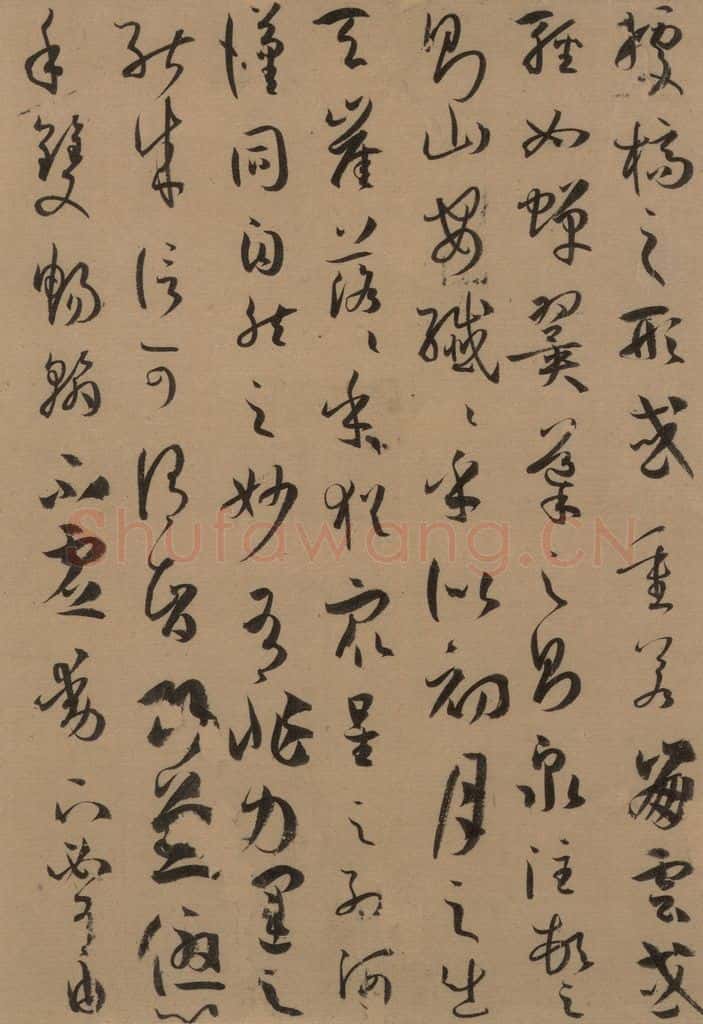 據槁之形或重若崩雲或
輕如蟬翼導之則泉注頓之
則山安纖〻乎似初月之出
天崖落〻乎猶眾星之列河
漢同自然之妙有非力運之
能成信可謂智巧兼優心
手雙暢翰不虛動下必有由
Shufawang.CN